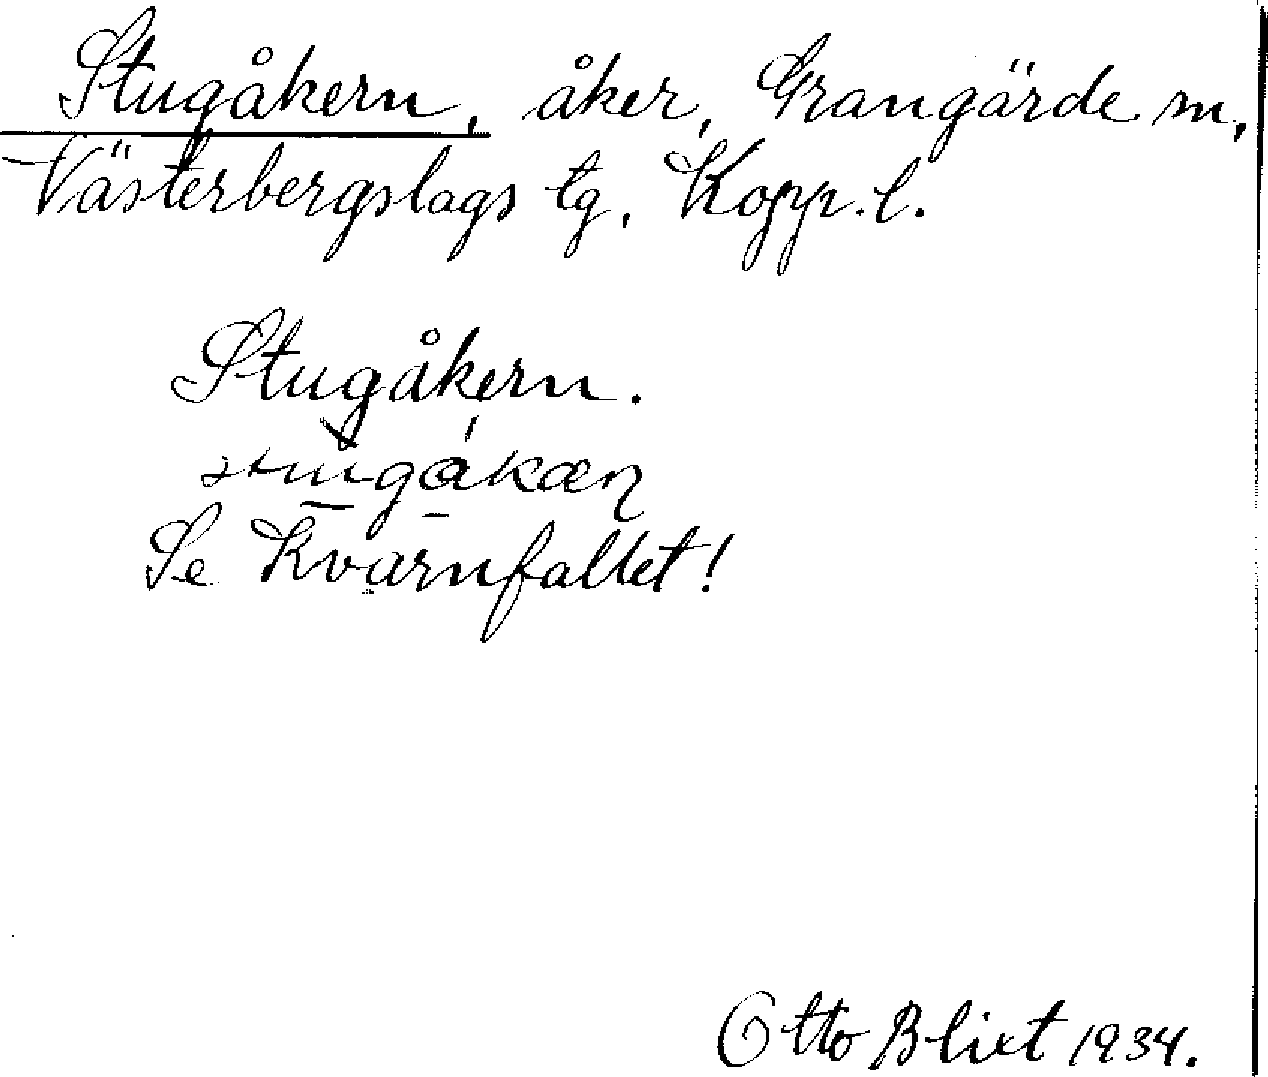 Stugåkern, åker, Grangärde sn,
Västerbergslags tg, Kopp. l.
Stugåkern.
Se Kvarnfallet!
Otto Blixt 1934.